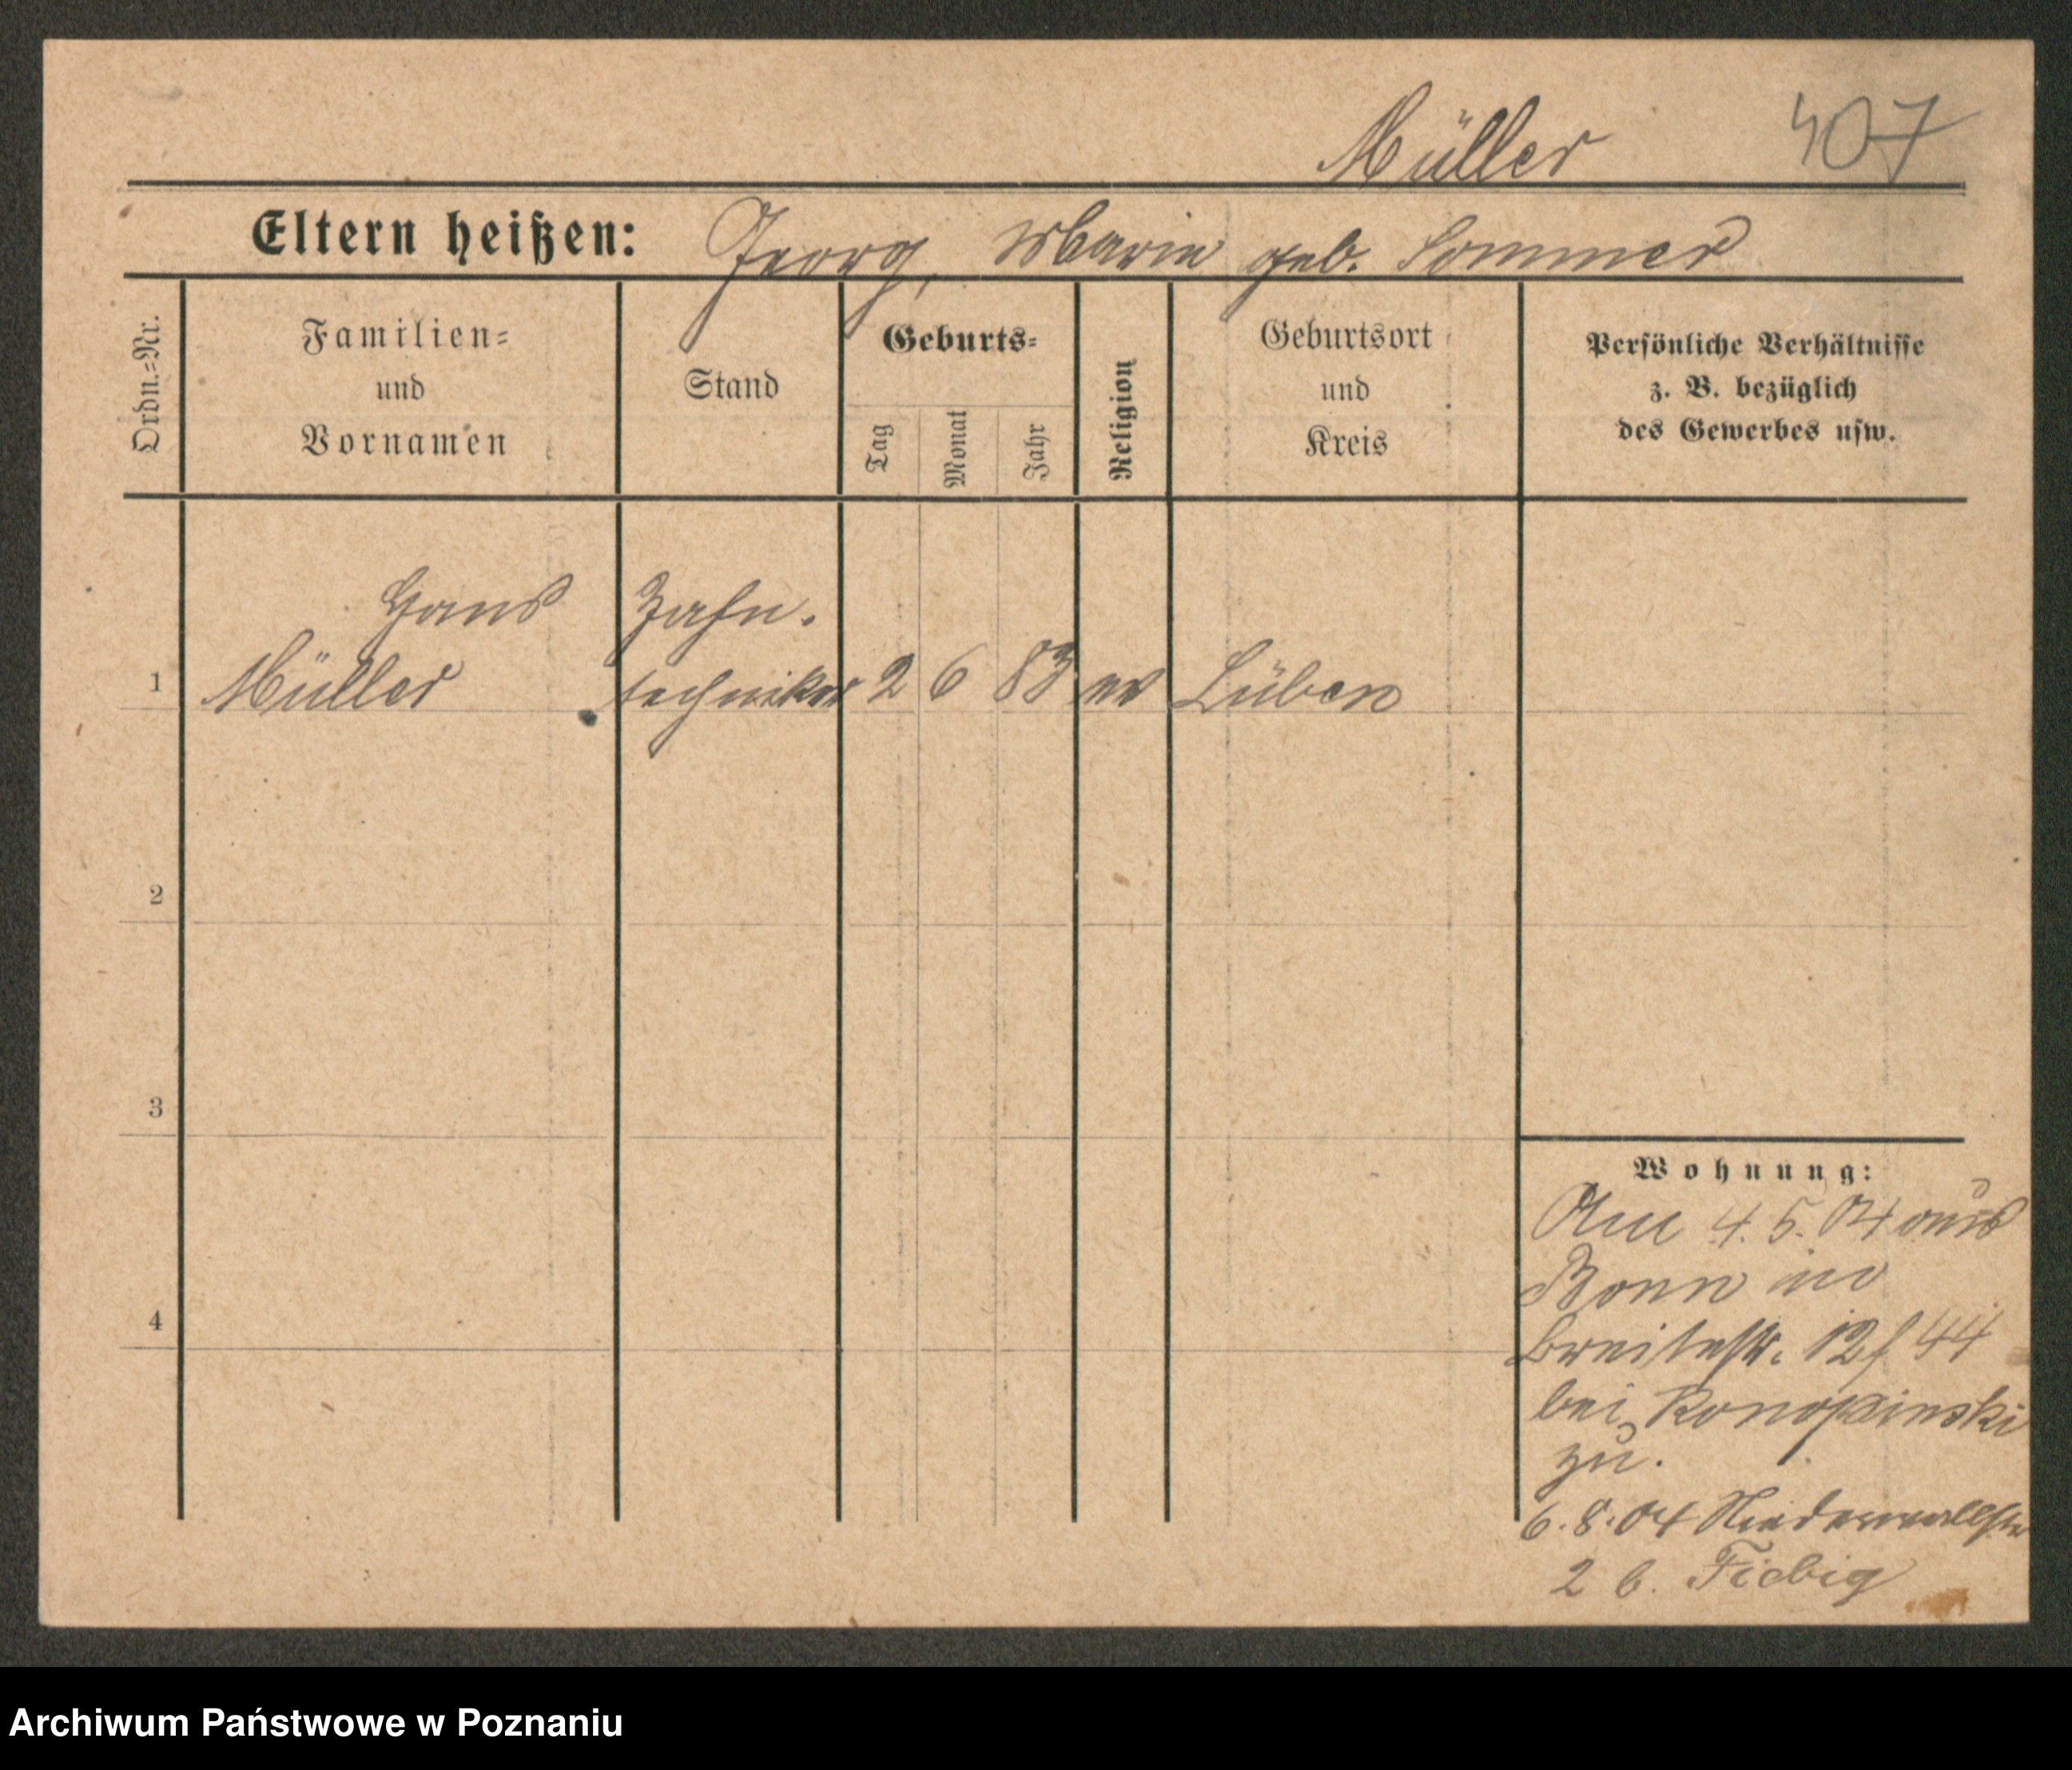 Müller 407
Eltern heißen: Georg, Maria geb. Sommer
Ordn.-Nr.
Familien-
und
Vornamen
Stand
Geburts-
Tag
Monat
Jahr
Religion
Geburtsort
und
Kreis
Persönliche Verhältnisse
z. B. bezüglich
des Gewerbes usw.
Hans Zahn.
1 Müller techniker 2 6 83 ev Lüben
2
3
4
Wohnung:
Am 4.5.04 aus
Bonn
Breitestr. 12/44
bei Konopinski
zu.
6.8.04 Niederwallstr
2 b. Fiebig
Archiwum Państwowe w Poznaniu